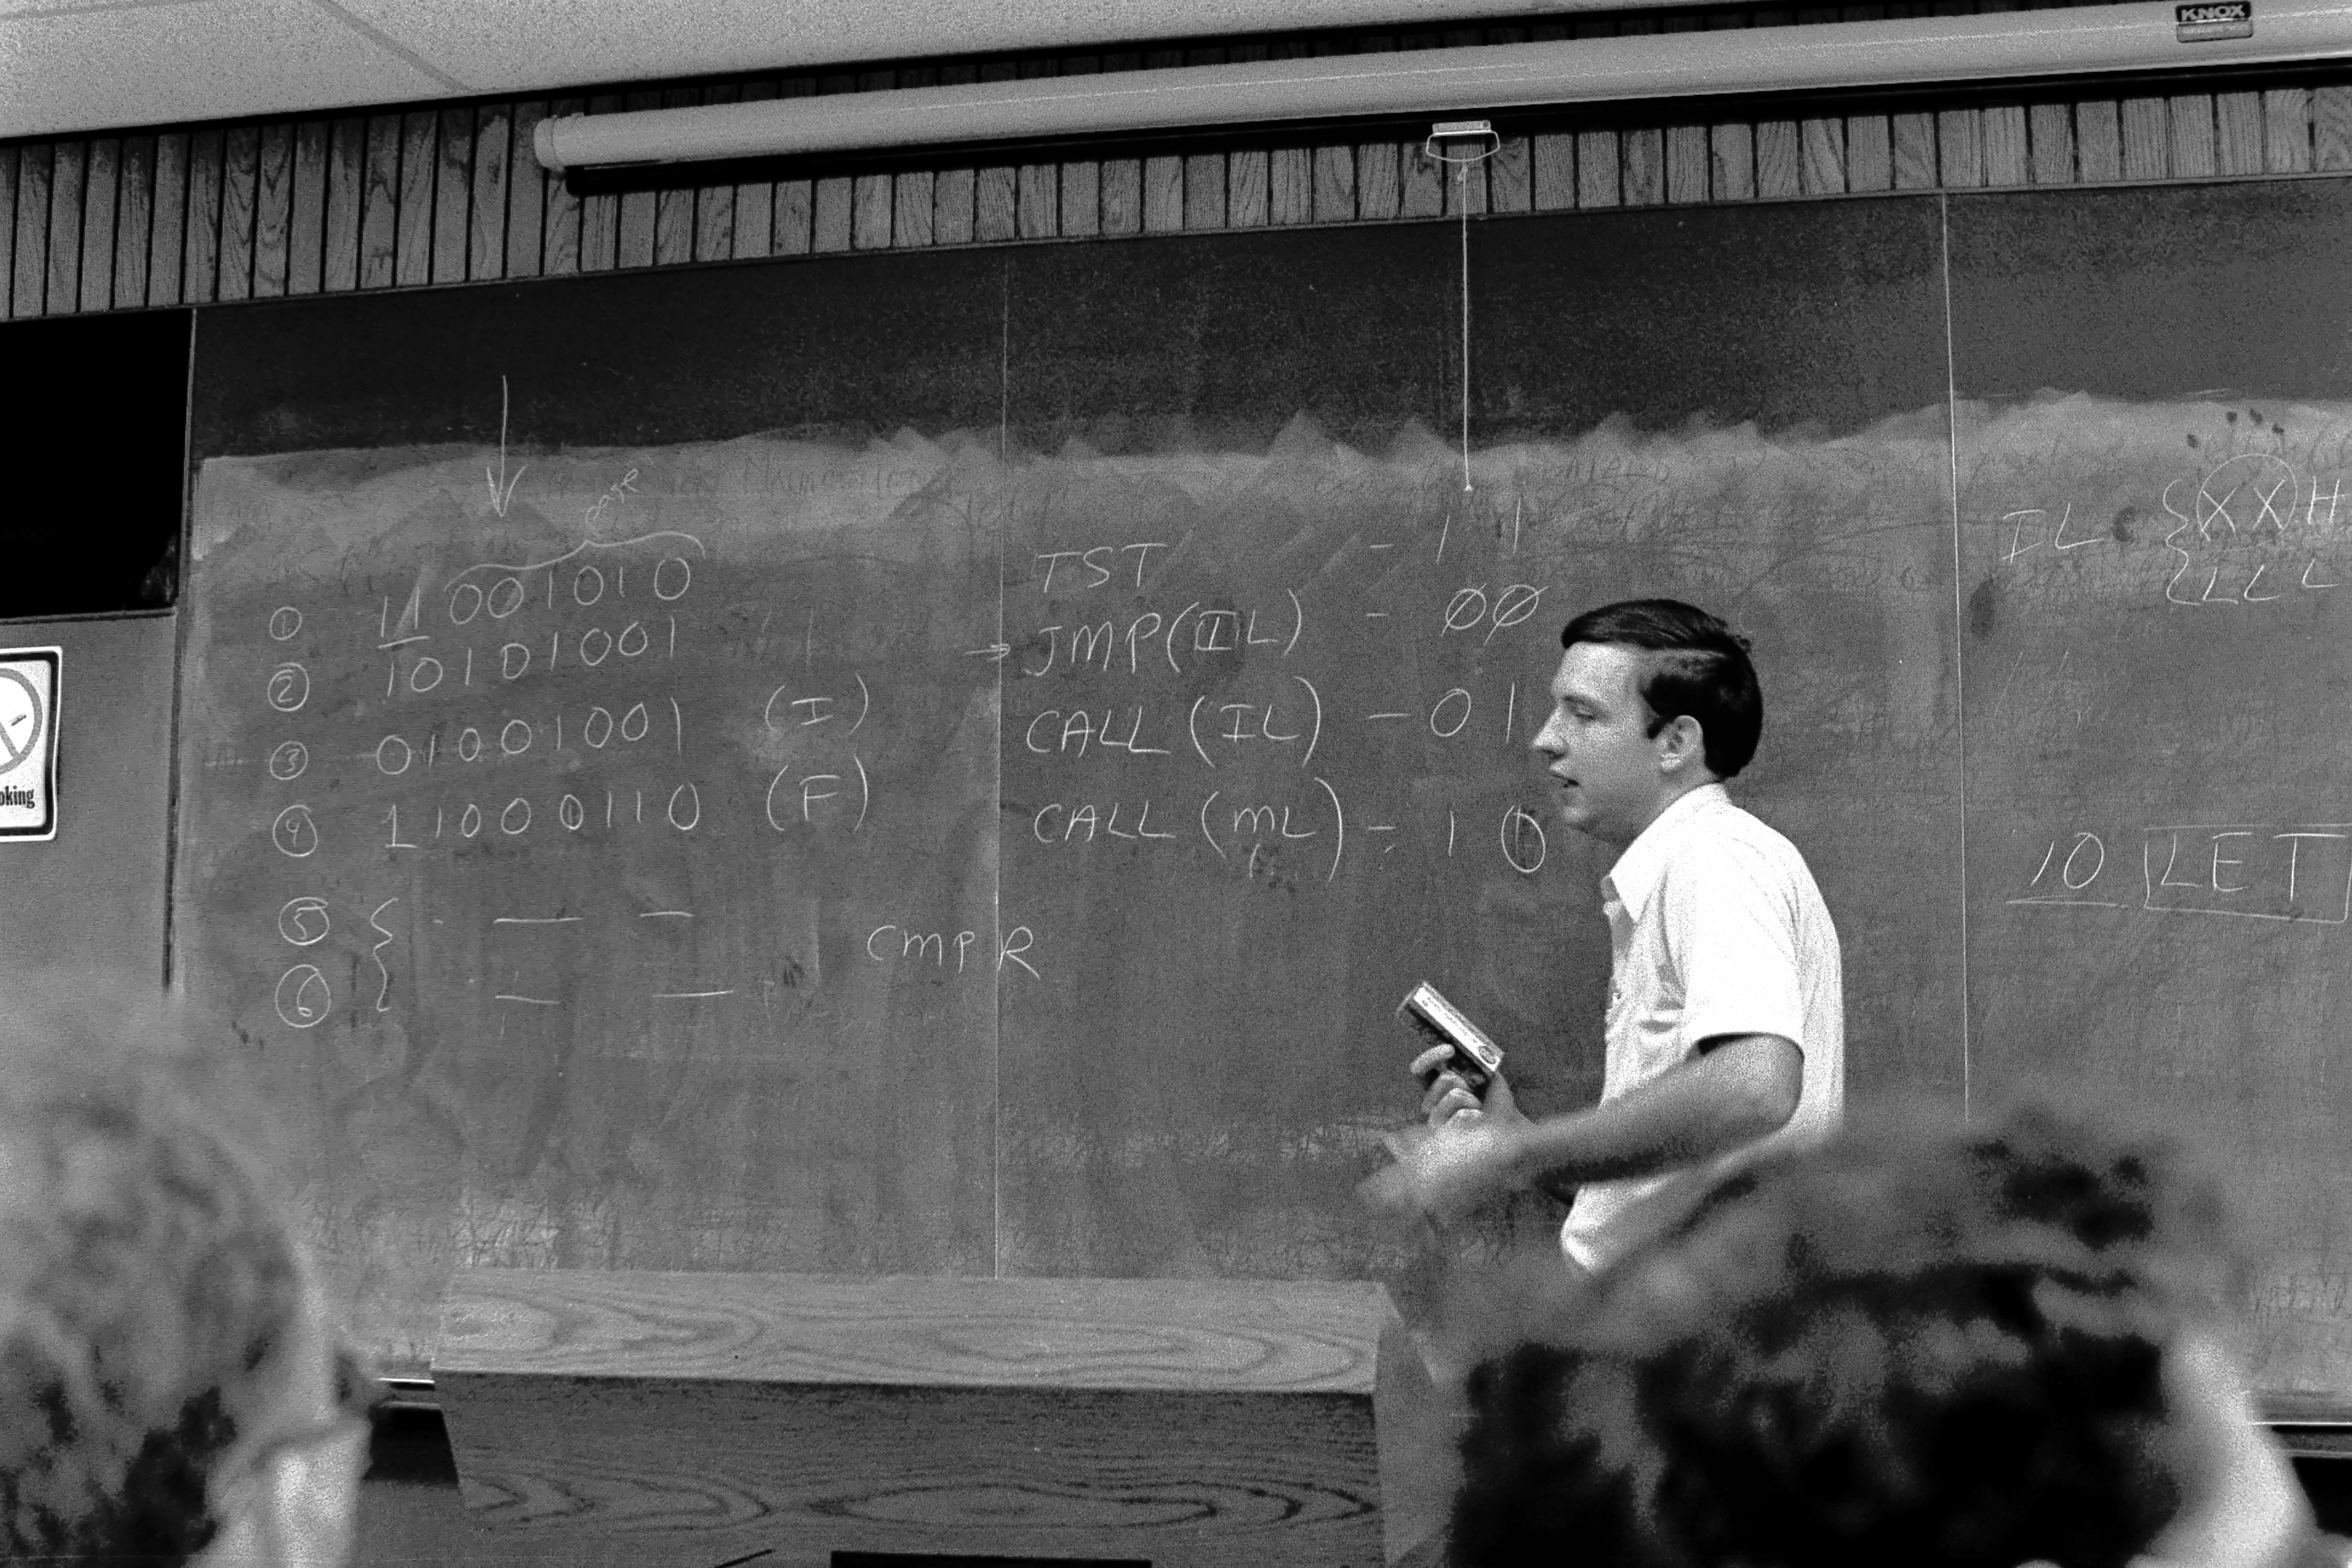 KNOX
① 11001010
② 10101001
③ 01001001 (I)
④ 11000110 (F)
⑤ { - — —
⑥ } — —
CMPR
TST - 11
→ JMP(IL) - ØØ
CALL (IL) - 01
CALL (ML) - 10
IL { XXH
{ LLL
10 LET
oking